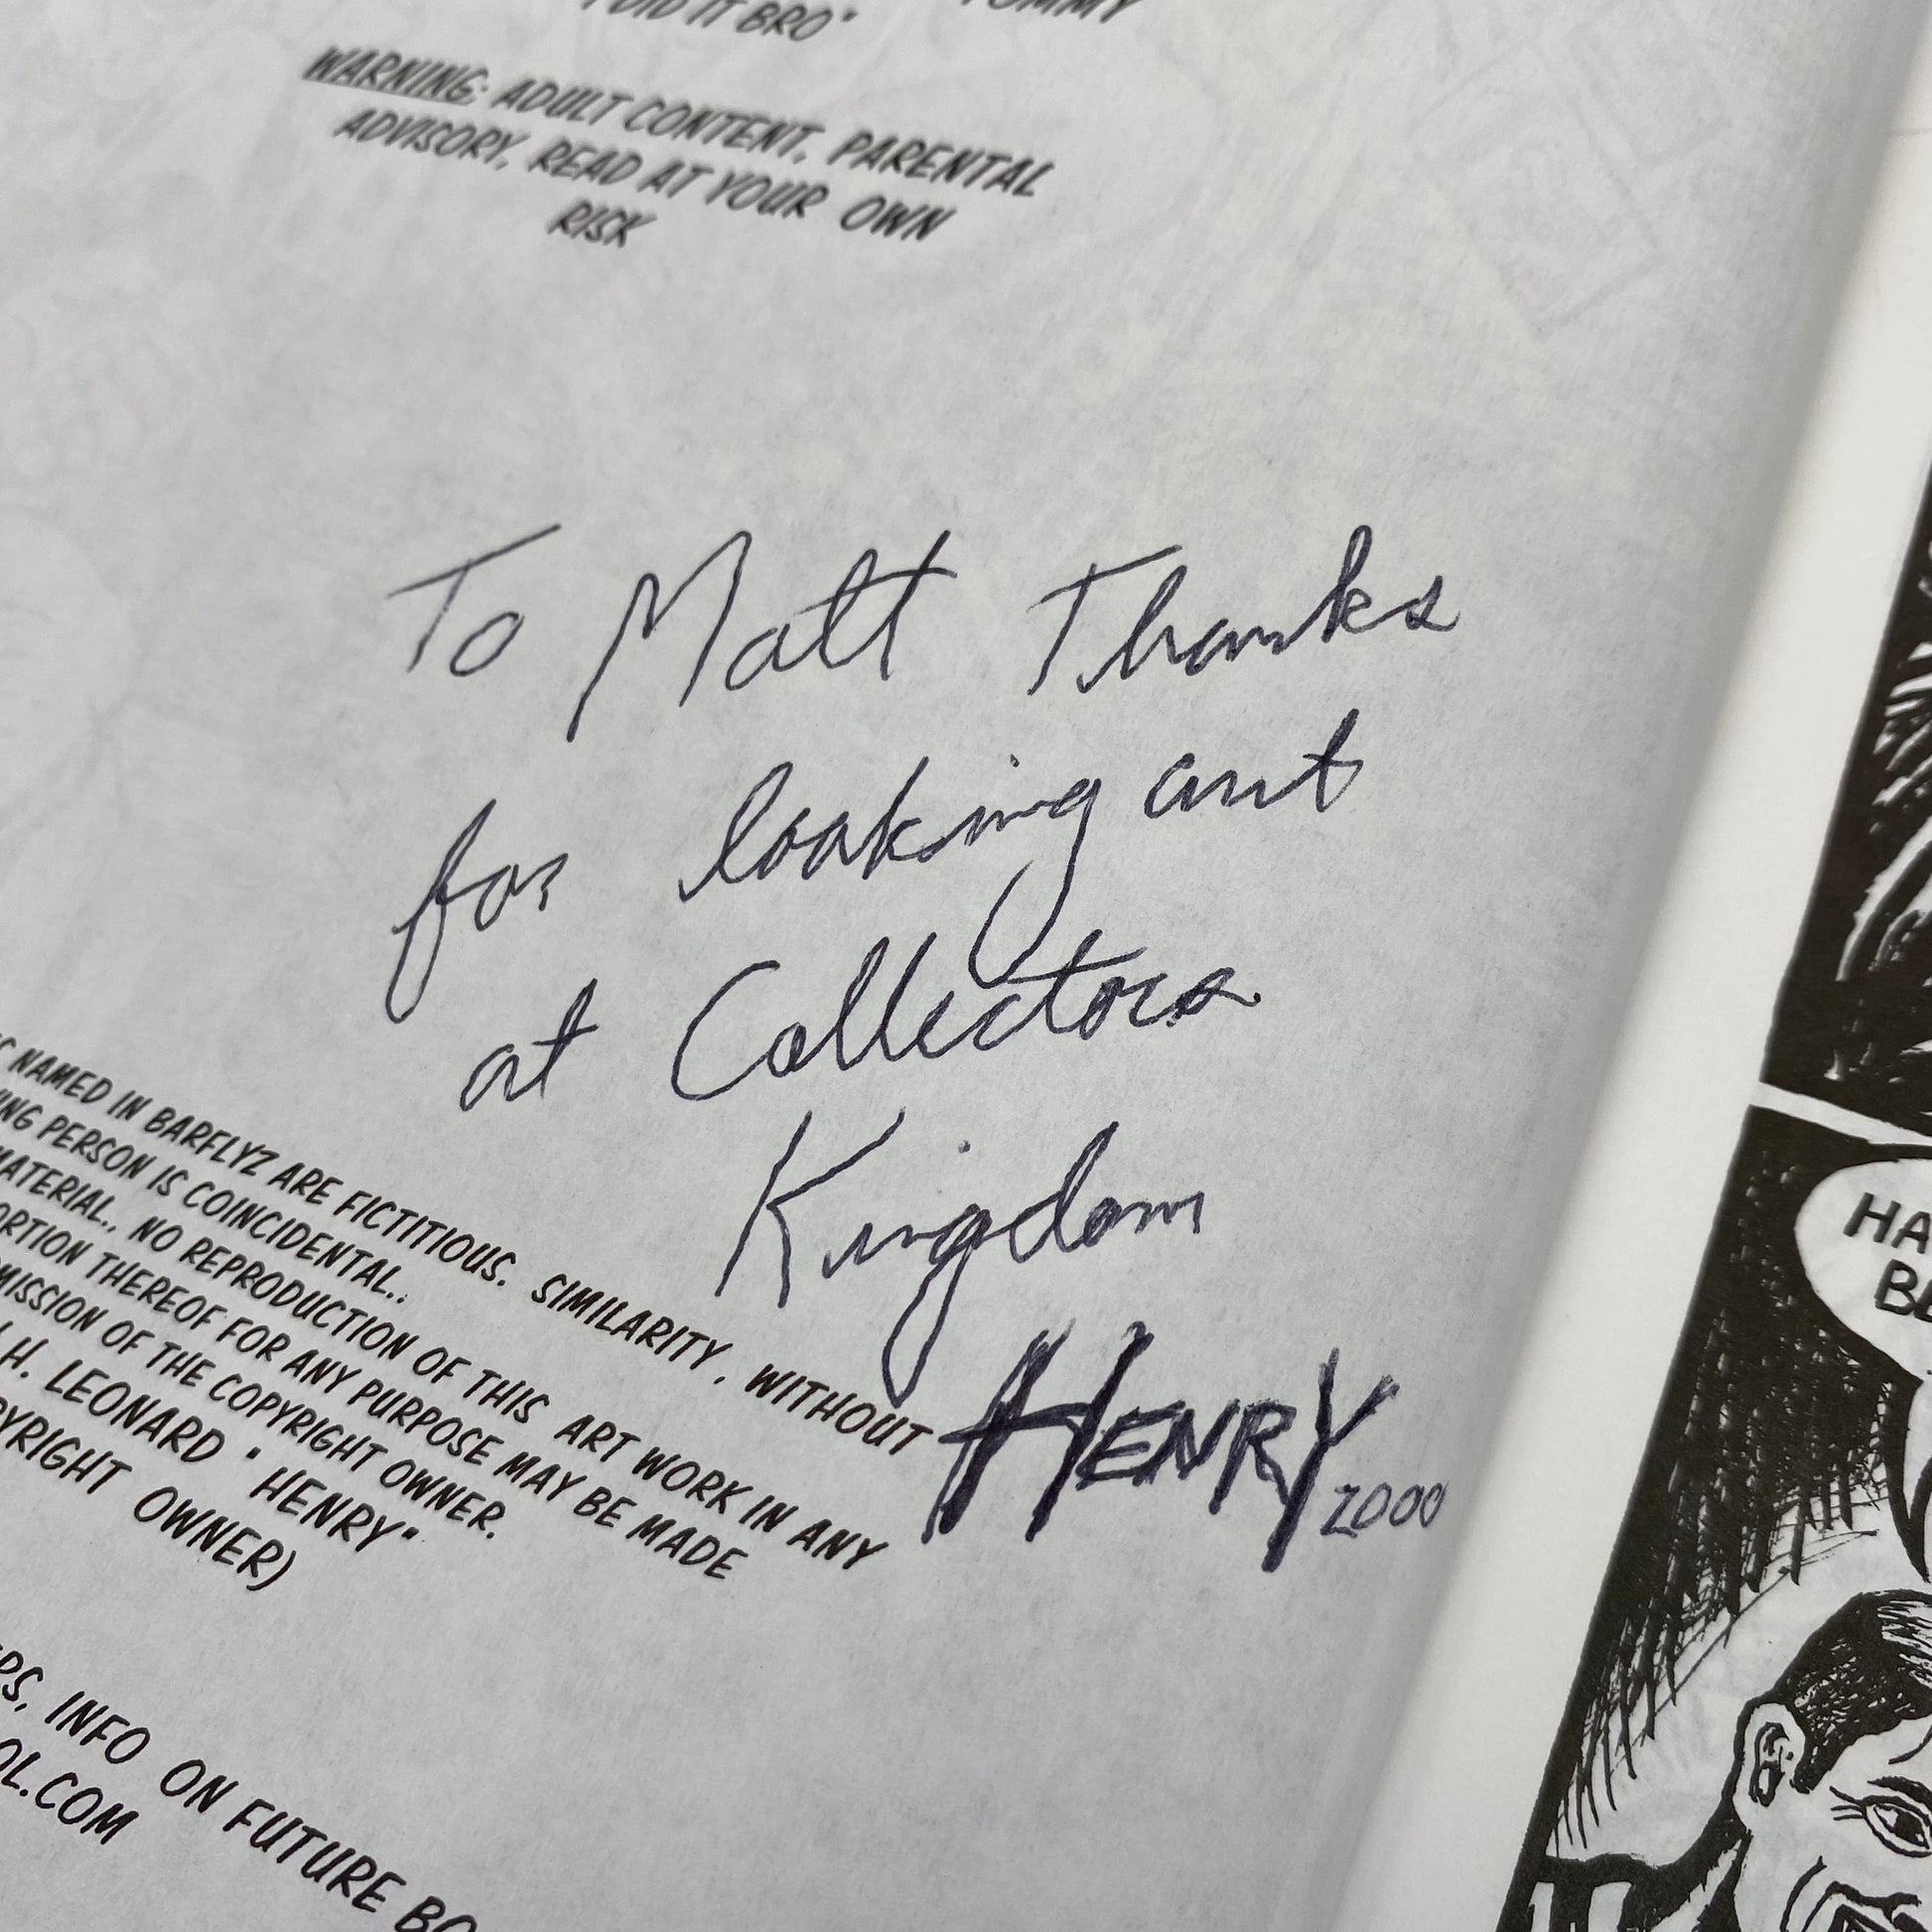 I DID IT BRO"
WARNING: ADULT CONTENT, PARENTAL
ADVISORY, READ AT YOUR OWN
RISK
To Matt Thanks
for looking out
at Collectors
Kingdom
HENRY 2000
NAMED IN BARFLYZ ARE FICTITIOUS. SIMILARITY, WITHOUT
PERSON IS COINCIDENTAL..
MATERIAL., NO REPRODUCTION OF THIS ART WORK IN ANY
THEREOF FOR ANY PURPOSE MAY BE MADE
OF THE COPYRIGHT OWNER.
H. LEONARD "HENRY"
OWNER)
INFO ON FUTURE
OL.COM
HA